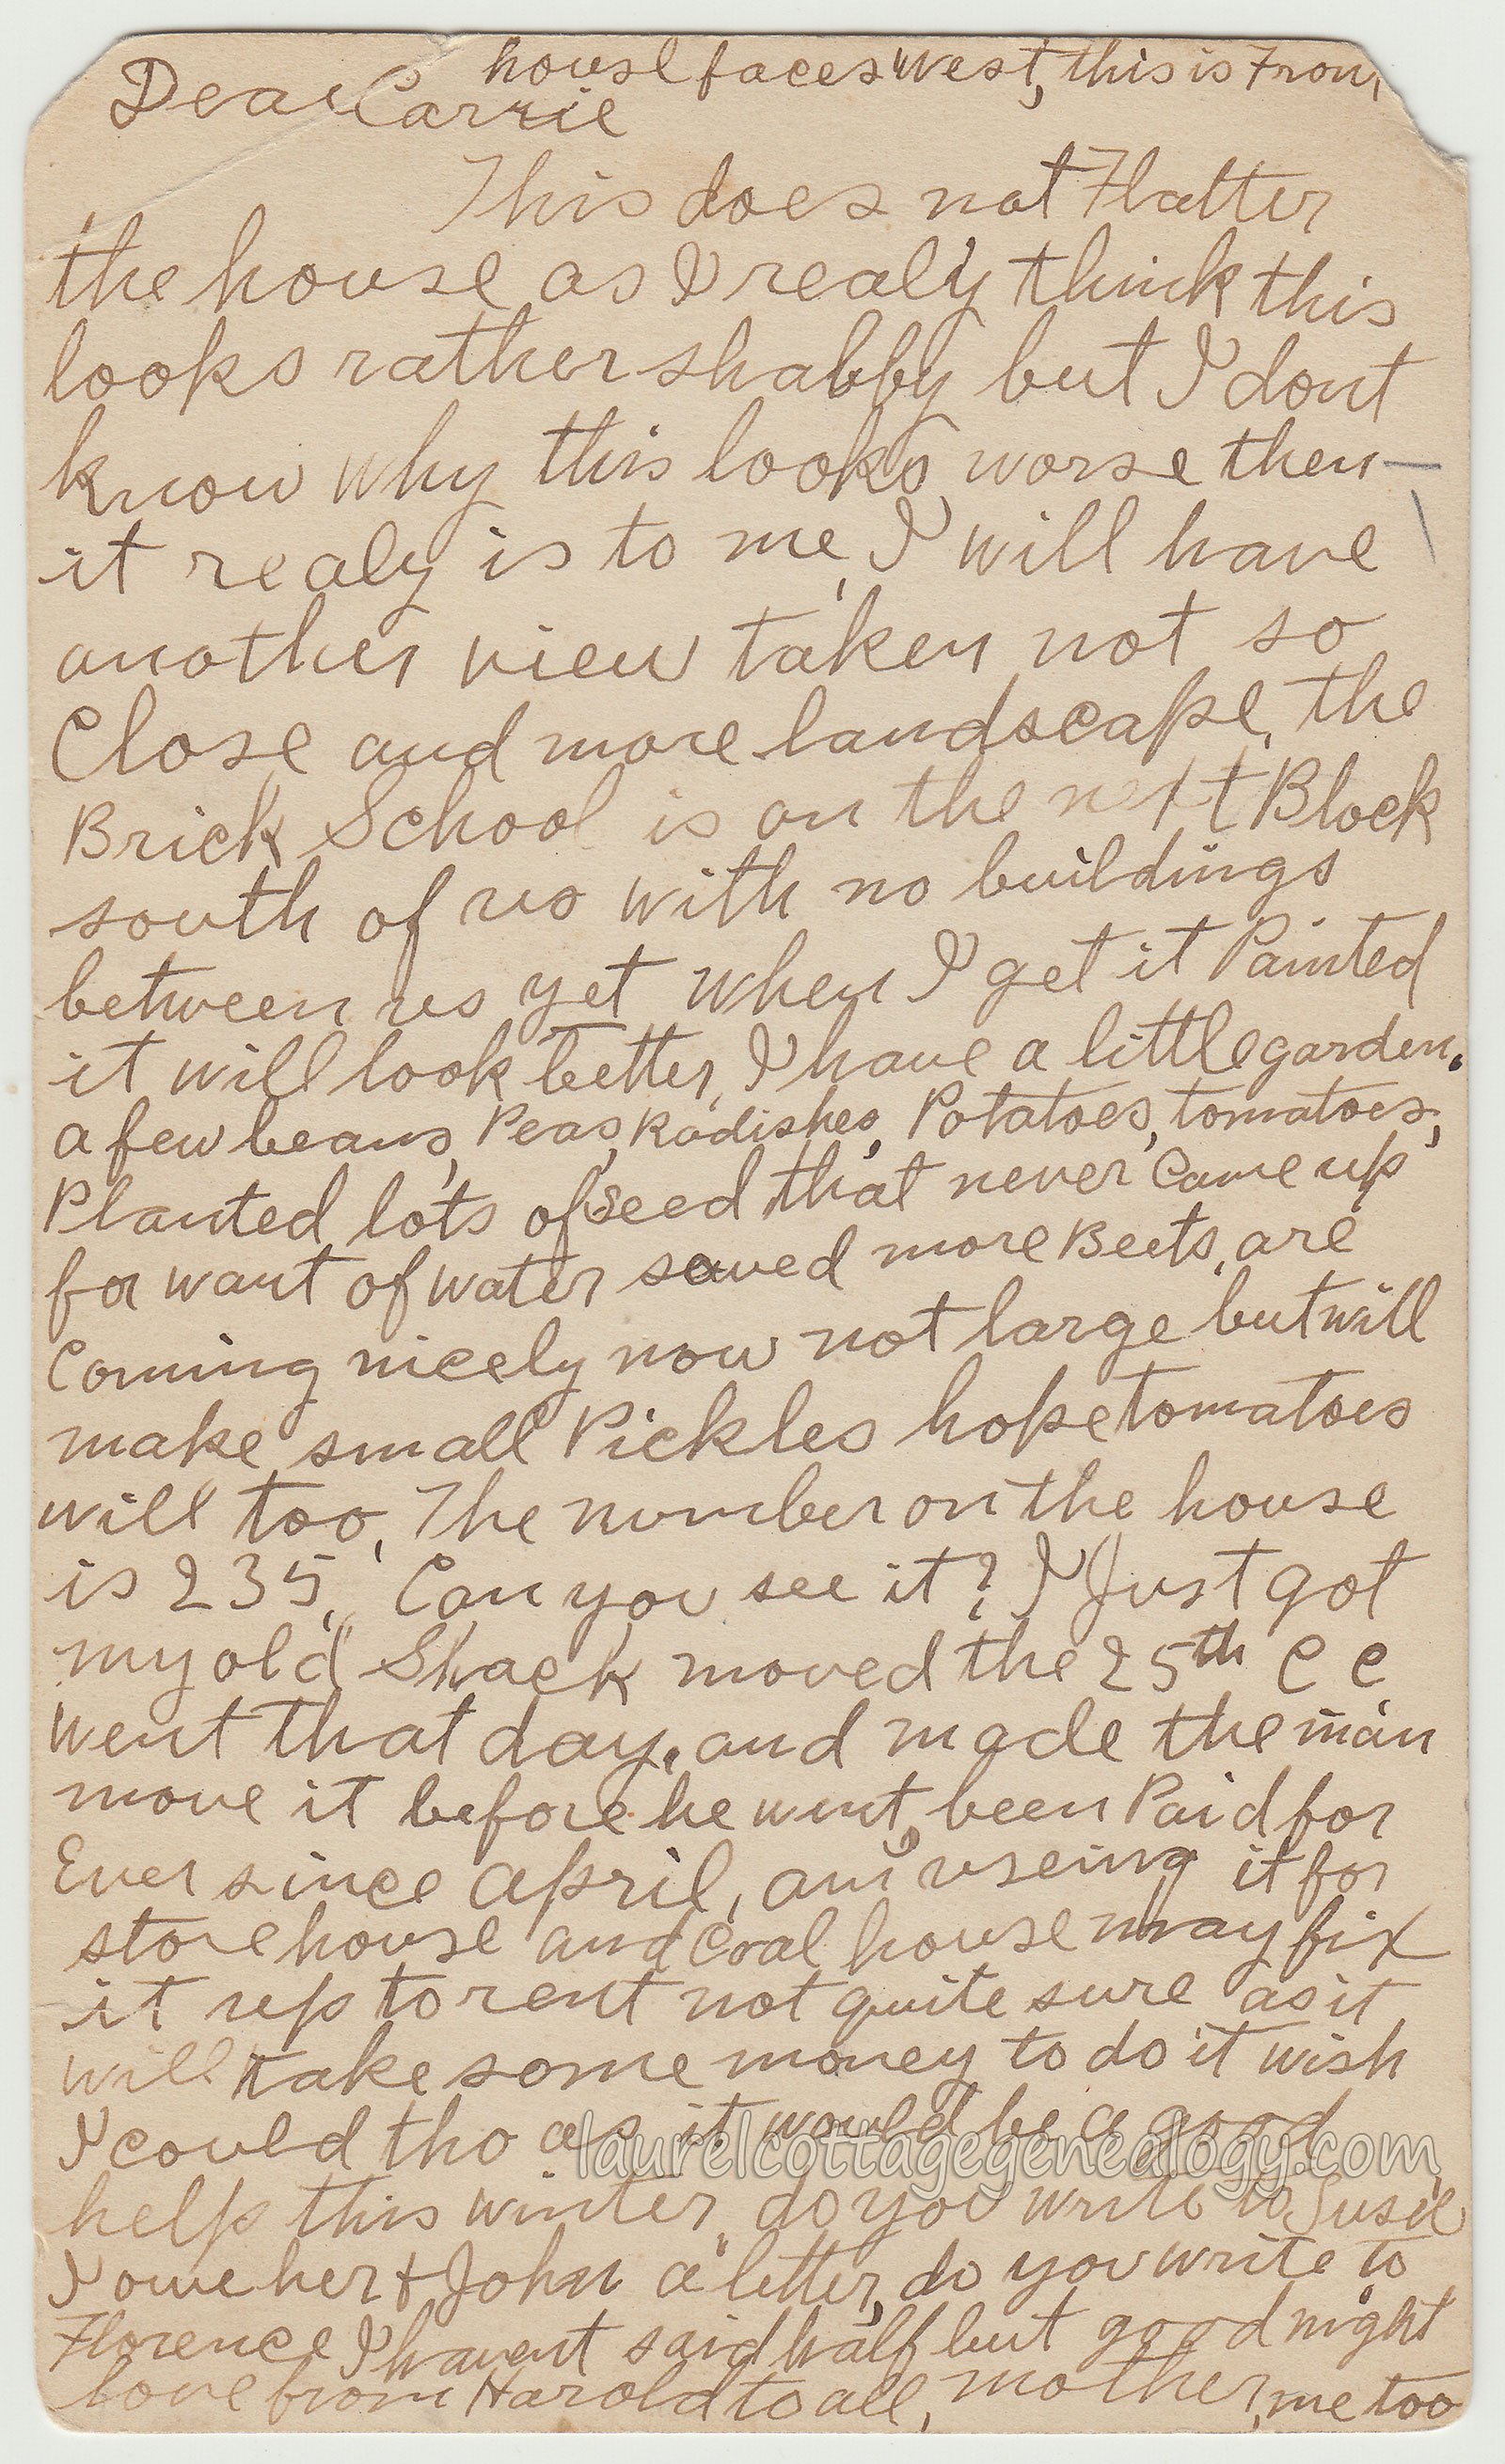 house faces west, this is Front
Dear Carrie
This does not Flatter
the house as I realy think this
looks rather shabby but I dont
know why this looks worse then
it realy is to me, I will have
another view taken not so
Close and more landscape, the
Brick School is on the next Block
south of us with no buildings
between us yet when I get it Painted
it will look better, I have a little garden.
a few beans, Peas, Radishes, Potatoes, tomatoes,
Planted lots of seed that never Came up
for want of water saved more Beets, are
Coming nicely now not large but will
make small Pickles hope tomatoes
will too, The number on the house
is 235, Can you see it? I Just got
my old Shack moved the 25th C C
went that day. and made the man
move it before he went, been Paid for
Ever since April, am useing it for
store house and Coal house may fix
it up to rent not quite sure as it
will take some money to do it wish
I could tho as it would be a good
help this winter, do you write to Susie
I owe her + John a letter, do you write to
Florence I havent said half but good night
love from Harold to all, mother, me too
laurelcottagegenealogy.com